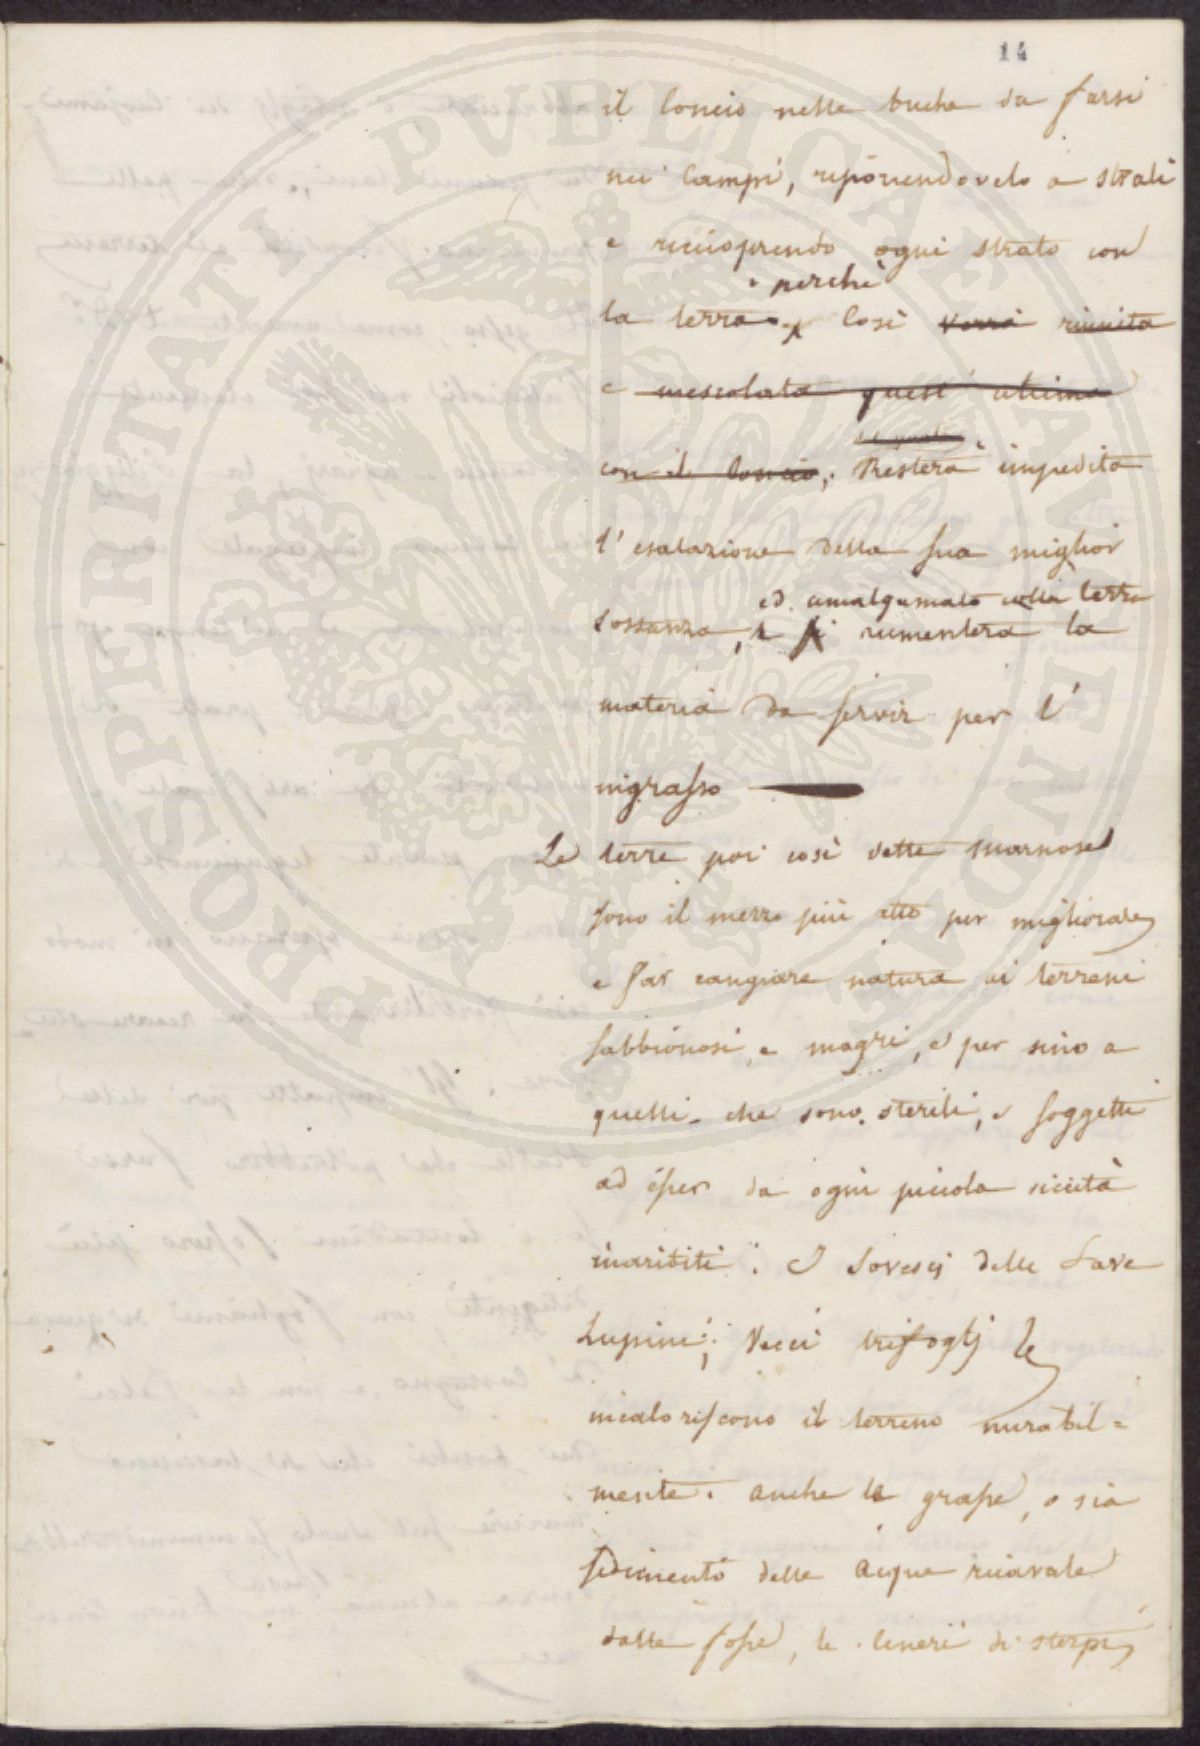 14
il Concio nelle buche da farsi
nei Campi, riponendovelo a strati
e riccuoprendo ogni strato con
perchè
la terra, Così verrà riunita
e mescolata quest' ultima
con il Concio, Resterà impedita
l' esalazione della sua miglior
ed amalgamato colla terra
sostanza, e si aumenterà la
materia da servir per l'
ingrasso
Le terre poi così dette marnose
sono il mezzo più atto per migliorare,
e far cangiare natura ai terreni
sabbionosi, e magri, e per sino a
quelli che sono sterili, e soggetti
ad esser da ogni piccola siccità
inariditi: I Sovescj delle Fave
Lupini; Vecci trifoglj
incaloriscono il terreno mirabil=
mente. anche le grasse, o sia
sedimento delle acque ricavate
dalle fosse, le Ceneri di sterpi,
PROSPERITATI PVBLICAE AVGENDAE